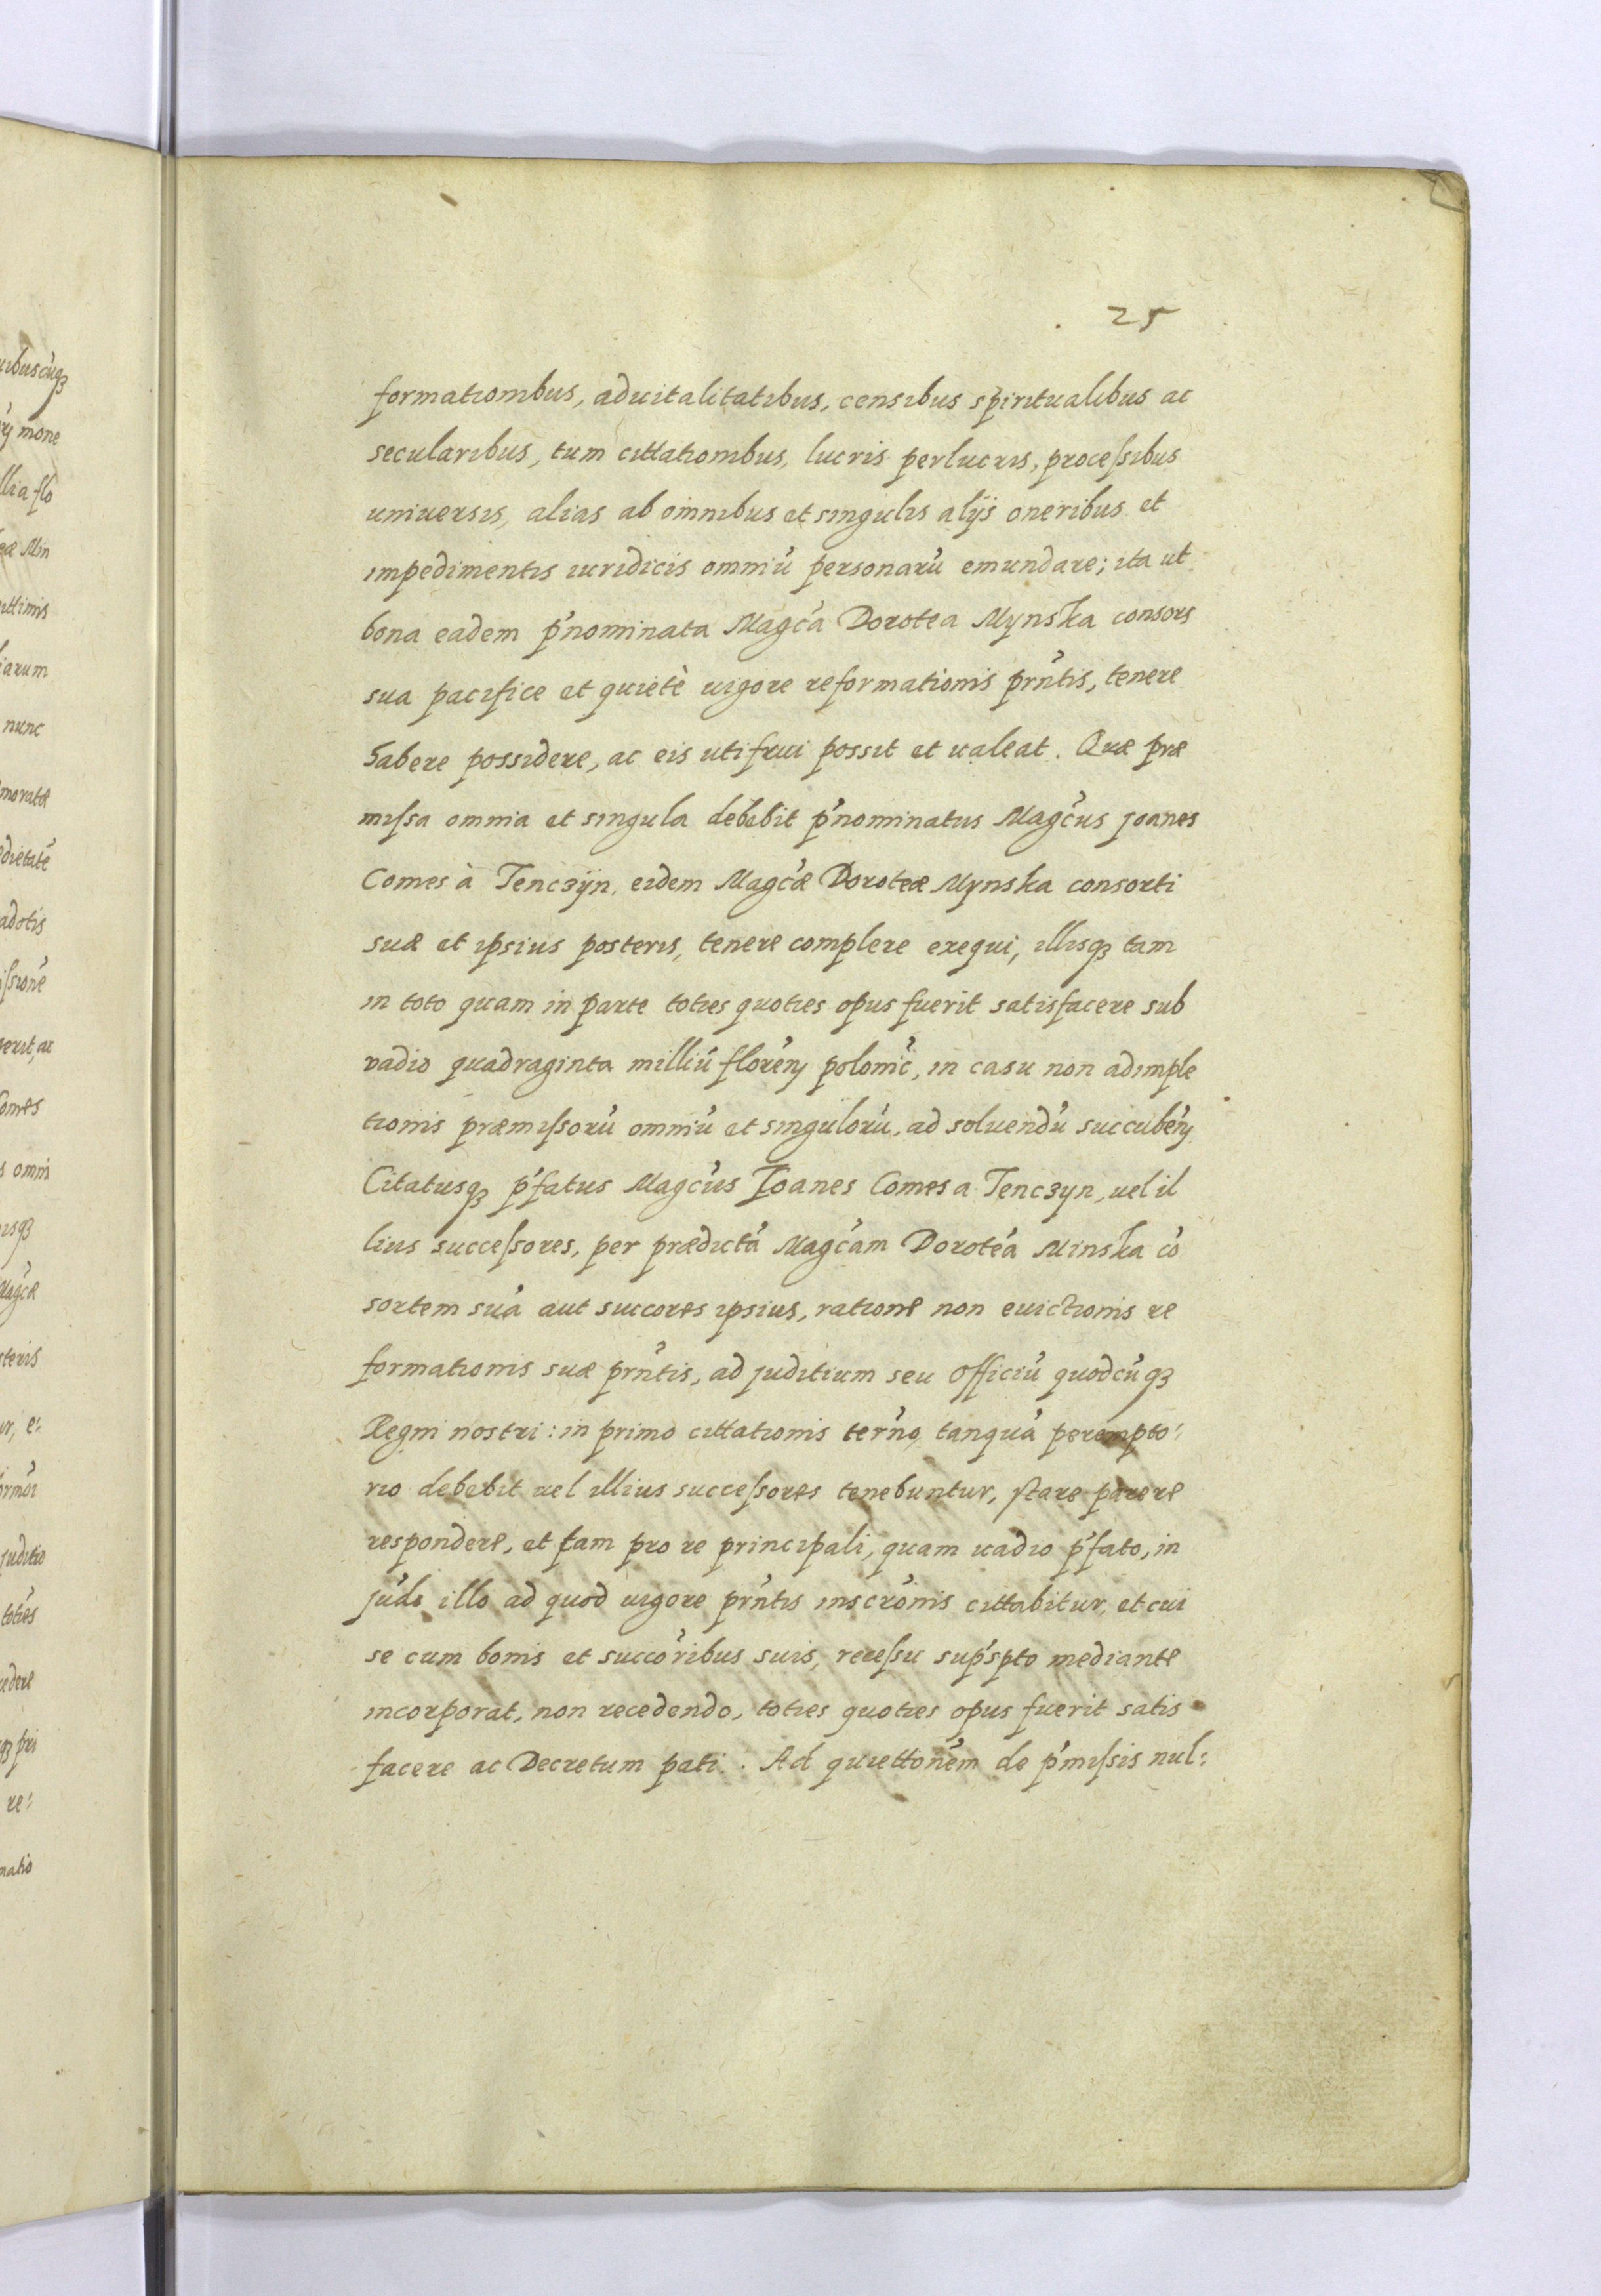 25
formationibus, aduitalitatibus, censibus spiritualibus ac
secularibus, tum cittationibus, lucris perlucris, processibus
uniuersis, alias ab omnibus et singulis alijs oneribus et
impedimentis iuridicis omniũ personarũ emundare; ita ut
bona eadem p̃nominata Magc̃a Dorotea Mynska consors
sua pacifice et quietè uigore reformationis prñtis, tenere
habere possidere, ac eis utifrui possit et ualeat. Quæ præ
missa omnia et singula debebit p̃nominatus Magc̃us Joanes
Comes à Tenczÿn, eidem Magc̃æ Doroteæ Mynska consorti
suæ et ipsius posteris, tenere complere exequi, illisqꝫ tam
in toto quam in parte toties quoties opus fuerit satisfacere sub
vadio quadraginta milliũ florẽn polonic̃, in casu non adimple
tionis præmissorũ omniũ et singulorũ, ad soluendũ succubẽn
Citatusqꝫ p̃fatus Magc̃us Joanes Comes a Tenczyn, uel il
lius successores, per prædictã Magc̃am Doroteã Minska cõ
sortem suã aut succores ipsius, ratione non euictionis re
formationis suæ prñtis, ad juditium seu Officiũ quodcũqꝫ
Regni nostri: in primo cittationis ter̃no, tanquã perempto:
rio debebit uel illius successores tenebuntur, stare parere
respondere, et tam pro re principali, quam uadio p̃fato, in
jud̃o illo ad quod uigore prñtis inscrõnis cittabitur, et cui
se cum bonis et succõribus suis, recessu sup̃spto mediante
incorporat, non recedendo, toties quoties opus fuerit satis
facere ac Decretum pati. Ad quiettonẽm de p̃missis nul:
uibuscũqꝫ
mone
llia flo
eæ Min
uttimis
iarum
nunc
moratæ
edietatẽ
adotis
issionẽ
uerit, ac
Comes
s omni
isqꝫ
Magc̃æ
steris
ur, e:
juditio
totiẽs
cedere
qꝫ pri
re:
matio